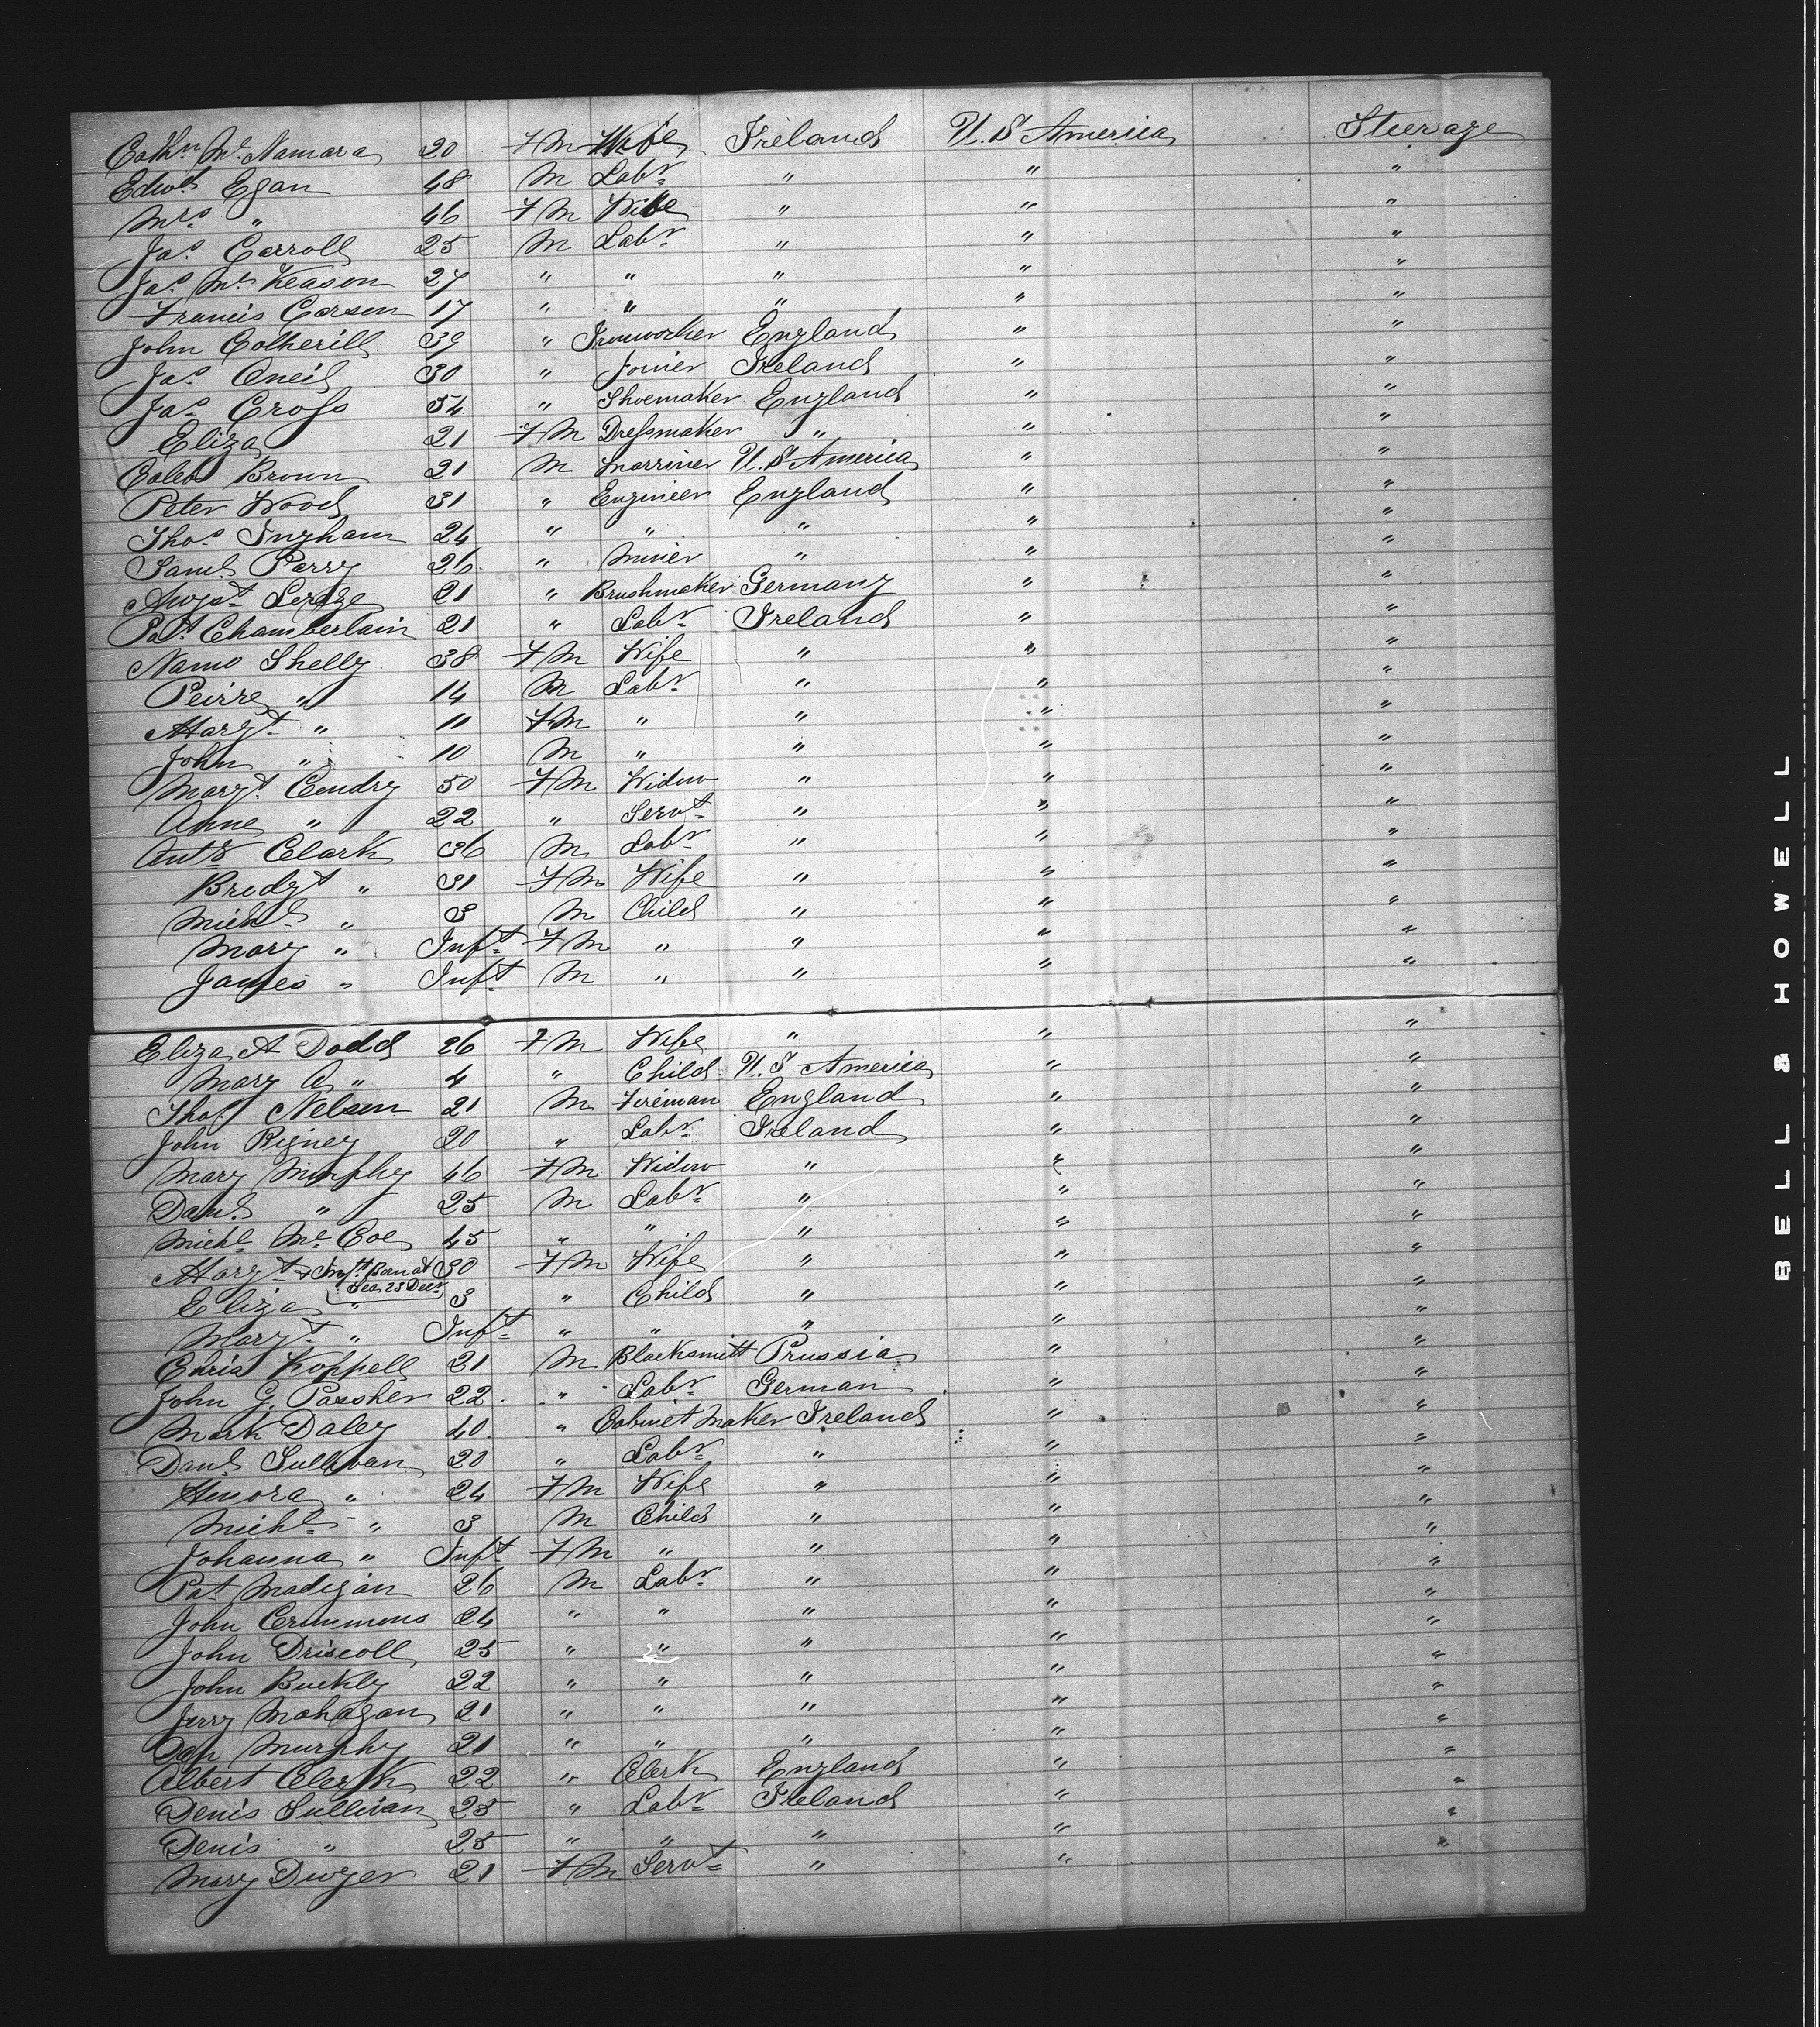 Cathn Mc Namara 20 F M Wife Ireland U.S America Steerage
Edwd Egan 48 M Labr " " "
Mrs " 46 F M Wife " " "
Jas Carroll 25 M Labr " " "
Jas Mc Keason 27 " " " " "
Francis Carson 17 " " " " "
John Cotherill 39 " Ironworker England " "
Jas Oneil 30 " Joiner Ireland " "
Jas Cross 54 " Shoemaker England " "
Eliza 21 F M Dressmaker " " "
Caleb Brown 21 M Marriner U.S America " "
Peter Wood 31 " Engineer England " "
Thos Ingham 24 " " " " "
Saml Parry 26 " Miner " " "
Augst 21 " Brushmaker Germany " "
Patk Chamberlain 21 " Labr Ireland " "
Shelly 38 F M Wife " " "
Peirre " 14 M Labr " " "
Margt " 11 F M " " " "
John " 10 M " " " "
Margt Cendry 50 F M Widow " " "
Anne " 22 " Servt " " "
Anty Clark 36 M Labr " " "
Bredgt " 31 F M Wife " " "
Michl " 3 M Child " " "
Mary " Inft F M " " " "
James " Inft M " " " "
Eliza A Dodd 26 F M Wife " " "
Mary A " 4 " Child U.S America " "
Thos Nelson 21 M Fireman England " "
John Rigney 20 " Labr Ireland " "
Mary Murphy 46 F M Widow " " "
Danl " 25 M Labr " " "
Michl Mc Coe 45 " " " " "
Margt + Inft Born at Sea 23 Decr 30 F M Wife " " "
Eliza " 3 " Child " " "
Margt " Inft " " " " "
Chris Koppell 31 M Blacksmitt Prussia " "
John G. Passher 22 " Labr German " "
Mark Daley 40 " Cabinet Maker Ireland " "
Danl Sullivan 20 " Labr " " "
Honora " 24 F M Wife " " "
Michl " 3 M Child " " "
Johanna " Inft F M " " " "
Pat Madigan 26 M Labr " " "
John Crimmons 24 " " " " "
John Driscoll 25 " " " " "
John Buckly 22 " " " " "
Jerry Mohagan 21 " " " " "
Dan Murphy 21 " " " " "
Albert Clerk 22 " Clerk England " "
Denis Sullivan 25 " Labr Ireland " "
Denis " 25 " " " " "
Mary Dwyer 21 F M Servt " "
BELL & HOWELL